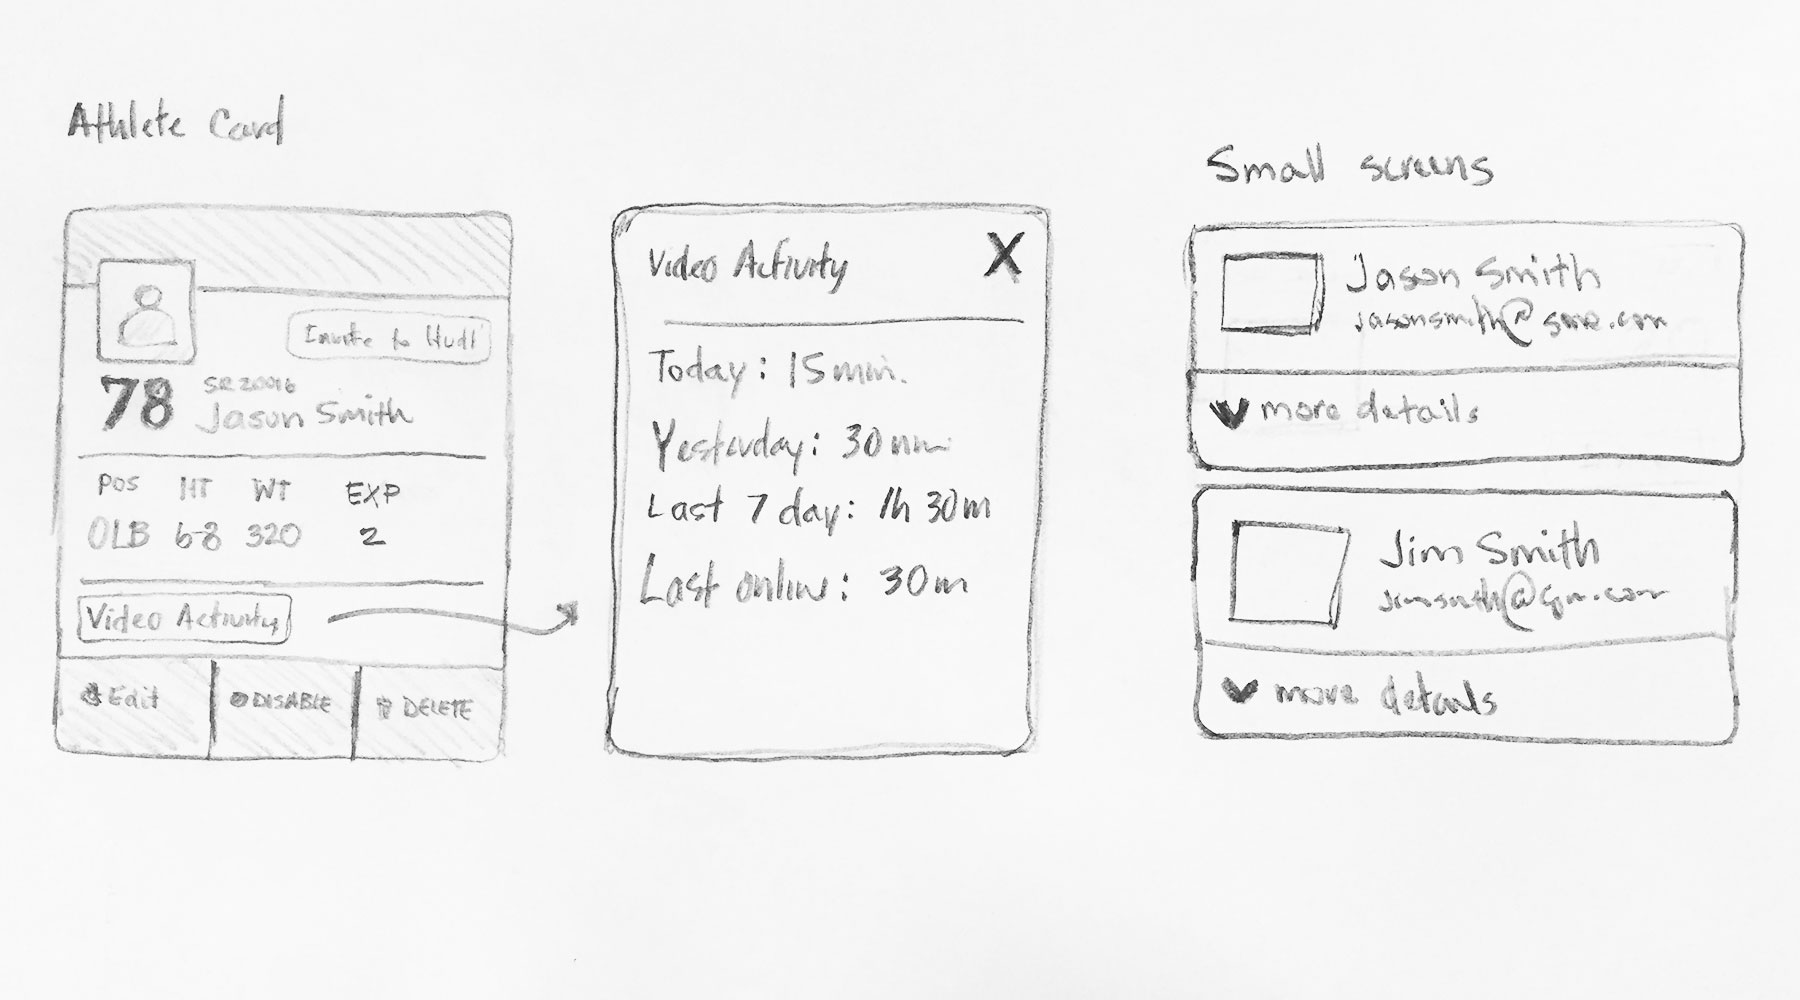 Athlete Card
Invite to Hudl
78
Jason Smith
POS HT WT EXP
OLB 6-8 320 2
Video Activity
Edit
DISABLE
DELETE
Video Activity X
Today: 15 min.
Yesterday: 30 min
Last 7 day: 1h 30m
Last online: 30m
Small screens
Jason Smith
more details
Jim Smith
more details